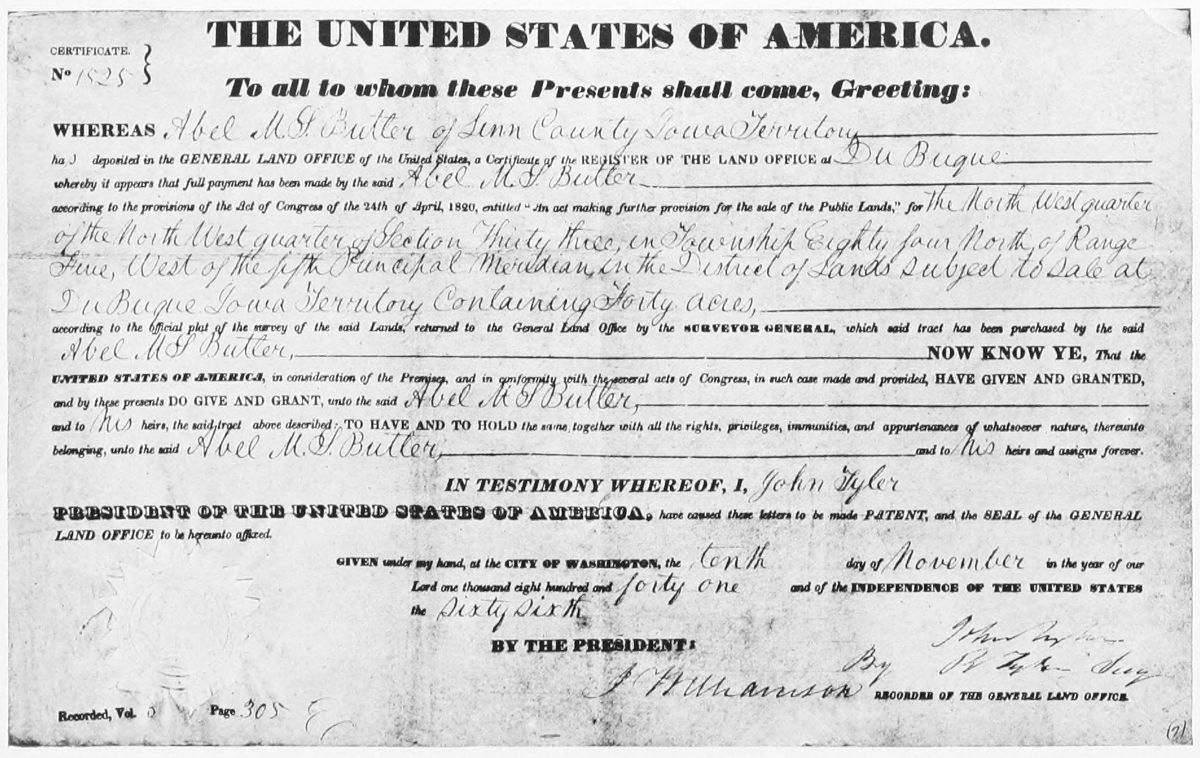 THE UNITED STATES OF AMERICA.
CERTIFICATE.
No 1525
To all to whom these Presents shall come, Greeting:
WHEREAS Abel M. S. Butler of Linn County Iowa Territory
ha deposited in the GENERAL LAND OFFICE of the United States, a Certificate of the REGISTER OF THE LAND OFFICE at Du Buque
whereby it appears that full payment has been made by the said Abel M S Butler
according to the provisions of the Act of Congress of the 24th of April, 1820, entitled "An act making further provision for the sale of the Public Lands," for the North West quarter
of the North West quarter of Section Thirty three, in Township Eighty four North, of Range
Five, West of the fifth Principal Meridian, in the District of Lands subject to sale at
Du Buque Iowa Territory Containing Forty acres,
according to the official plat of the survey of the said Lands, returned to the General Land Office by the SURVEYOR GENERAL, which said tract has been purchased by the said
Abel M S Butler, NOW KNOW YE, That the
UNITED STATES OF AMERICA, in consideration of the Premises, and in conformity with the several acts of Congress, in such case made and provided, HAVE GIVEN AND GRANTED,
and by these presents DO GIVE AND GRANT, unto the said Abel M S Butler,
and to his heirs, the said tract above described: TO HAVE AND TO HOLD the same, together with all the rights, privileges, immunities, and appurtenances of whatsoever nature, thereunto
belonging, unto the said Abel M. S. Butler, and to his heirs and assigns forever.
IN TESTIMONY WHEREOF, I, John Tyler
PRESIDENT OF THE UNITED STATES OF AMERICA, have caused these letters to be made PATENT, and the SEAL of the GENERAL
LAND OFFICE to be hereunto affixed.
GIVEN under my hand, at the CITY OF WASHINGTON, the tenth day of November in the year of our
Lord one thousand eight hundred and forty one and of the INDEPENDENCE OF THE UNITED STATES
the sixty sixth
BY THE PRESIDENT: John Tyler
By R Tyler Secy
J Williamson RECORDER OF THE GENERAL LAND OFFICE.
Recorded, Vol. Page 305